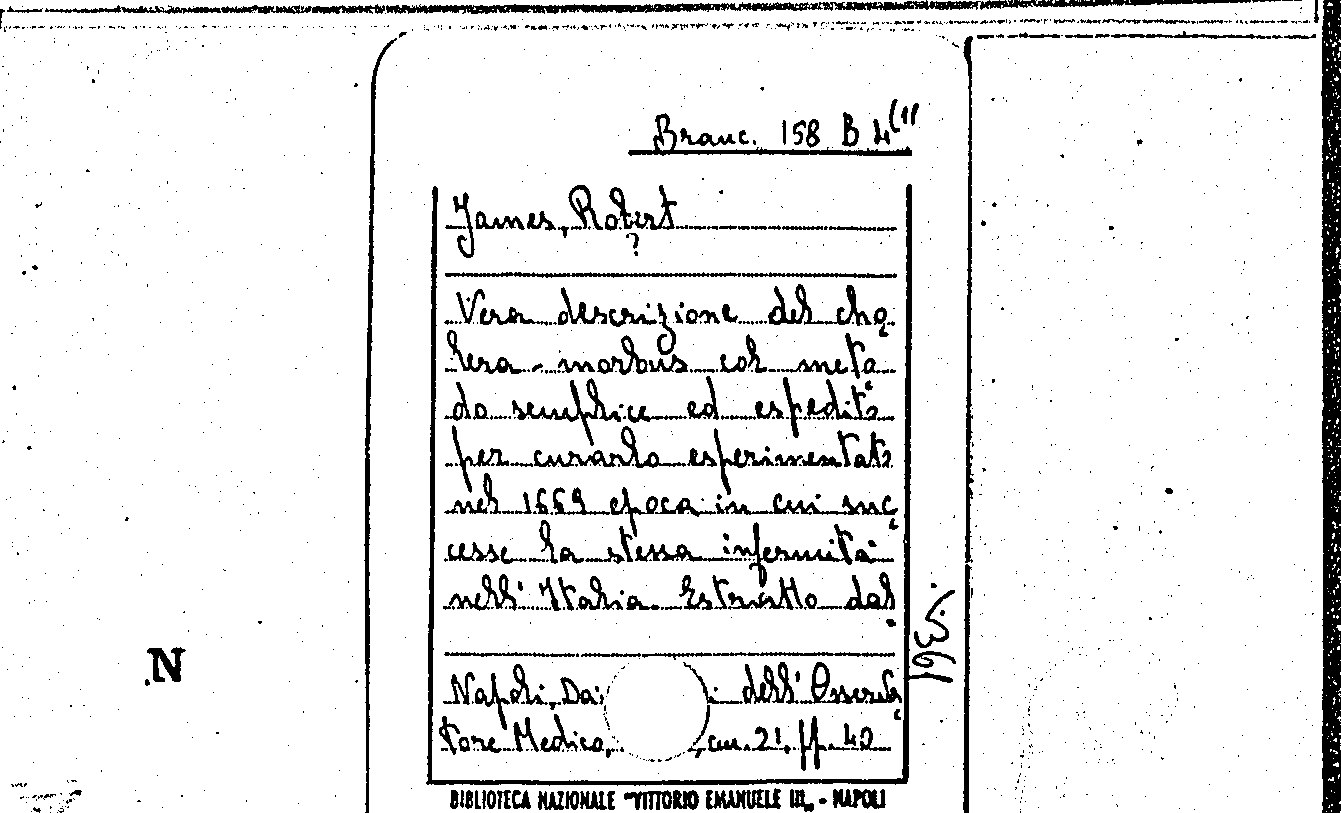 Branc. 158 B 4(11
James, Robert
?
Vera descrizione del cho
lera-morbus col meto
do semplice ed espedito
per curarlo esperimentato
nel 1669 epoca in cui suc
cesse la stessa infermità
nell' Italia. Estratto dal
N
Napoli, Dai dell' Osserva
tore Medico, cm. 21, pp. 40
BIBLIOTECA NAZIONALE "VITTORIO EMANUELE III„ - NAPOLI